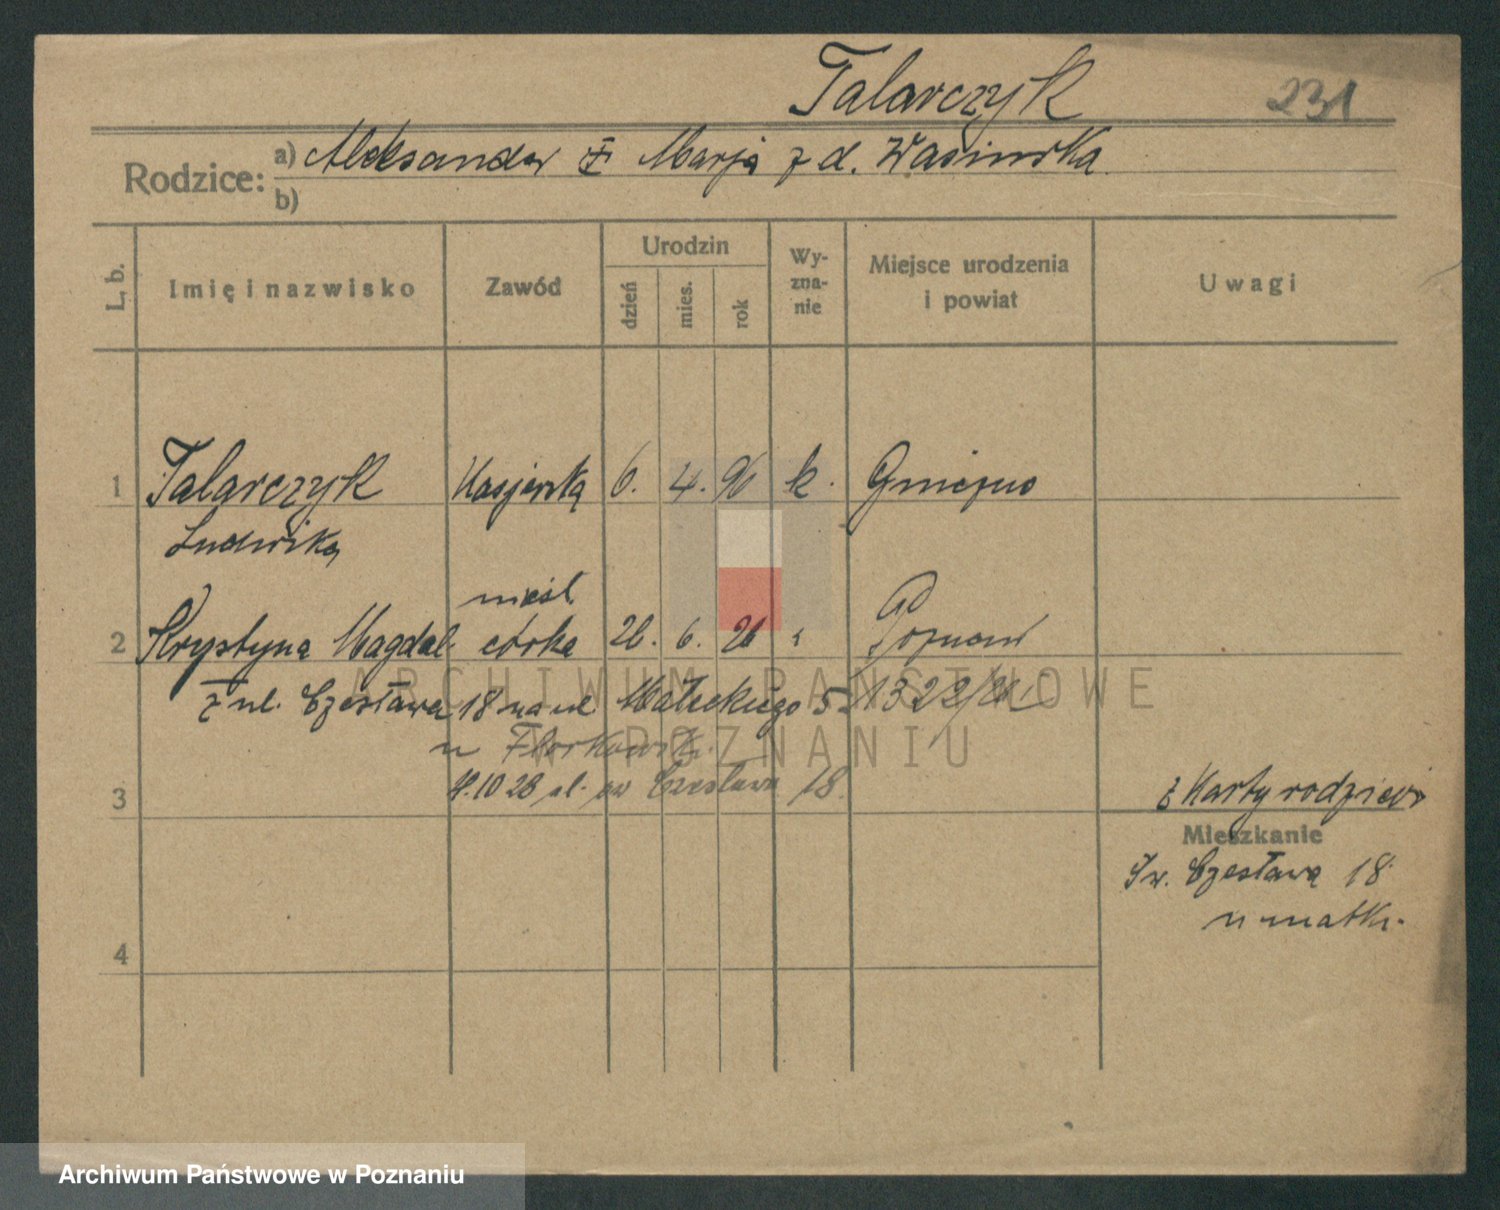 Talarczyk 231
Rodzice: a) Aleksander Marja z d. Wasińska
b)
L. b. Imię i nazwisko Zawód Urodzin dzień mies. rok Wy-zna-nie Miejsce urodzenia i powiat Uwagi
1 Talarczyk Kasjerka 6. 4. 96 k. Gniezno
Ludwika
nieśl.
2 Krystyna Magdal. córka 26. 6. 26 Poznań
z ul. Czesława 18 na ul Małeckiego 5 1322/26
u
28 ul. św Czesława 18.
3 z Karty rodziców
Mieszkanie
Św. Czesława 18
u matki.
4
ARCHIWUM PAŃSTWOWE
W POZNANIU
Archiwum Państwowe w Poznaniu